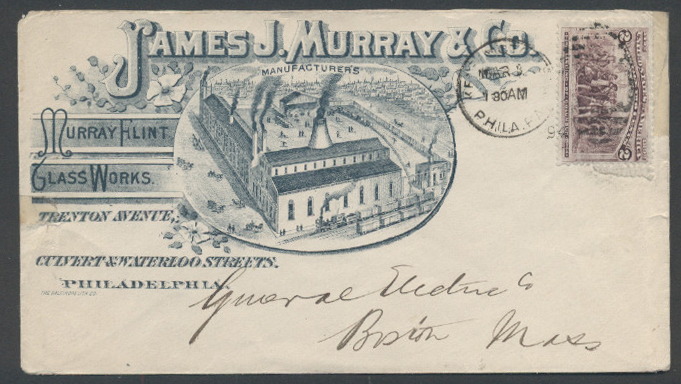 JAMES J. MURRAY & CO.
MANUFACTURERS
MURRAY FLINT
GLASS WORKS.
TRENTON AVENUE,
CULVERT & WATERLOO STREETS.
PHILADELPHIA.
MAR
130AM
PHILA. PA
94
2
2
General Electric Co
Boston Mass